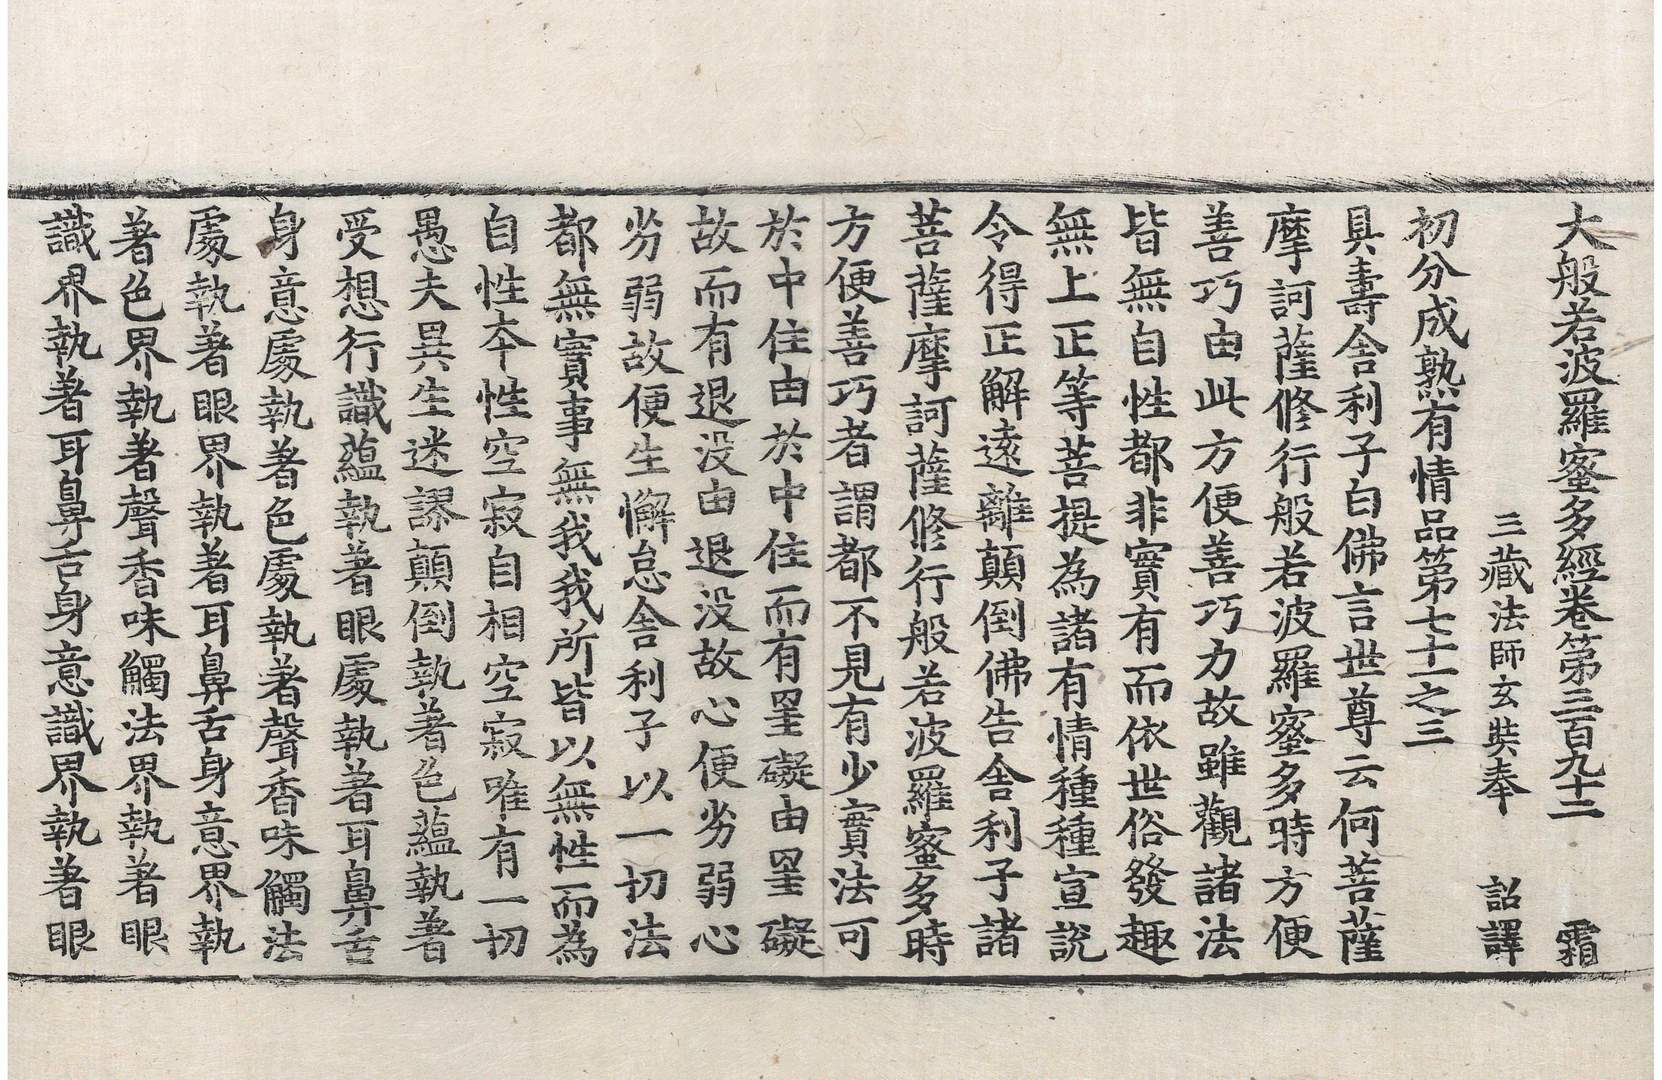 大般若波羅蜜多經卷第三百九十二　霜
三藏法師玄奘奉　詔譯
初分成熟有情品第七十一之三
具壽舍利子白佛言世尊云何菩薩
摩訶薩修行般若波羅蜜多時方便
善巧由此方便善巧力故雖觀諸法
皆無自性都非實有而依世俗發趣
無上正等菩提為諸有情種種宣說
令得正解遠離顛倒佛告舍利子諸
菩薩摩訶薩修行般若波羅蜜多時
方便善巧者謂都不見有少實法可
於中住由於中住而有罣礙由罣礙
故而有退没由退没故心便劣弱心
劣弱故便生懈怠舍利子以一切法
都無實事無我我所皆以無性而為
自性本性空寂自相空寂唯有一切
愚夫異生迷謬顛倒執著色蘊執著
受想行識蘊執著眼處執著耳鼻舌
身意處執著色處執著聲香味觸法
處執著眼界執著耳鼻舌身意界執
著色界執著聲香味觸法界執著眼
識界執著耳鼻舌身意識界執著眼